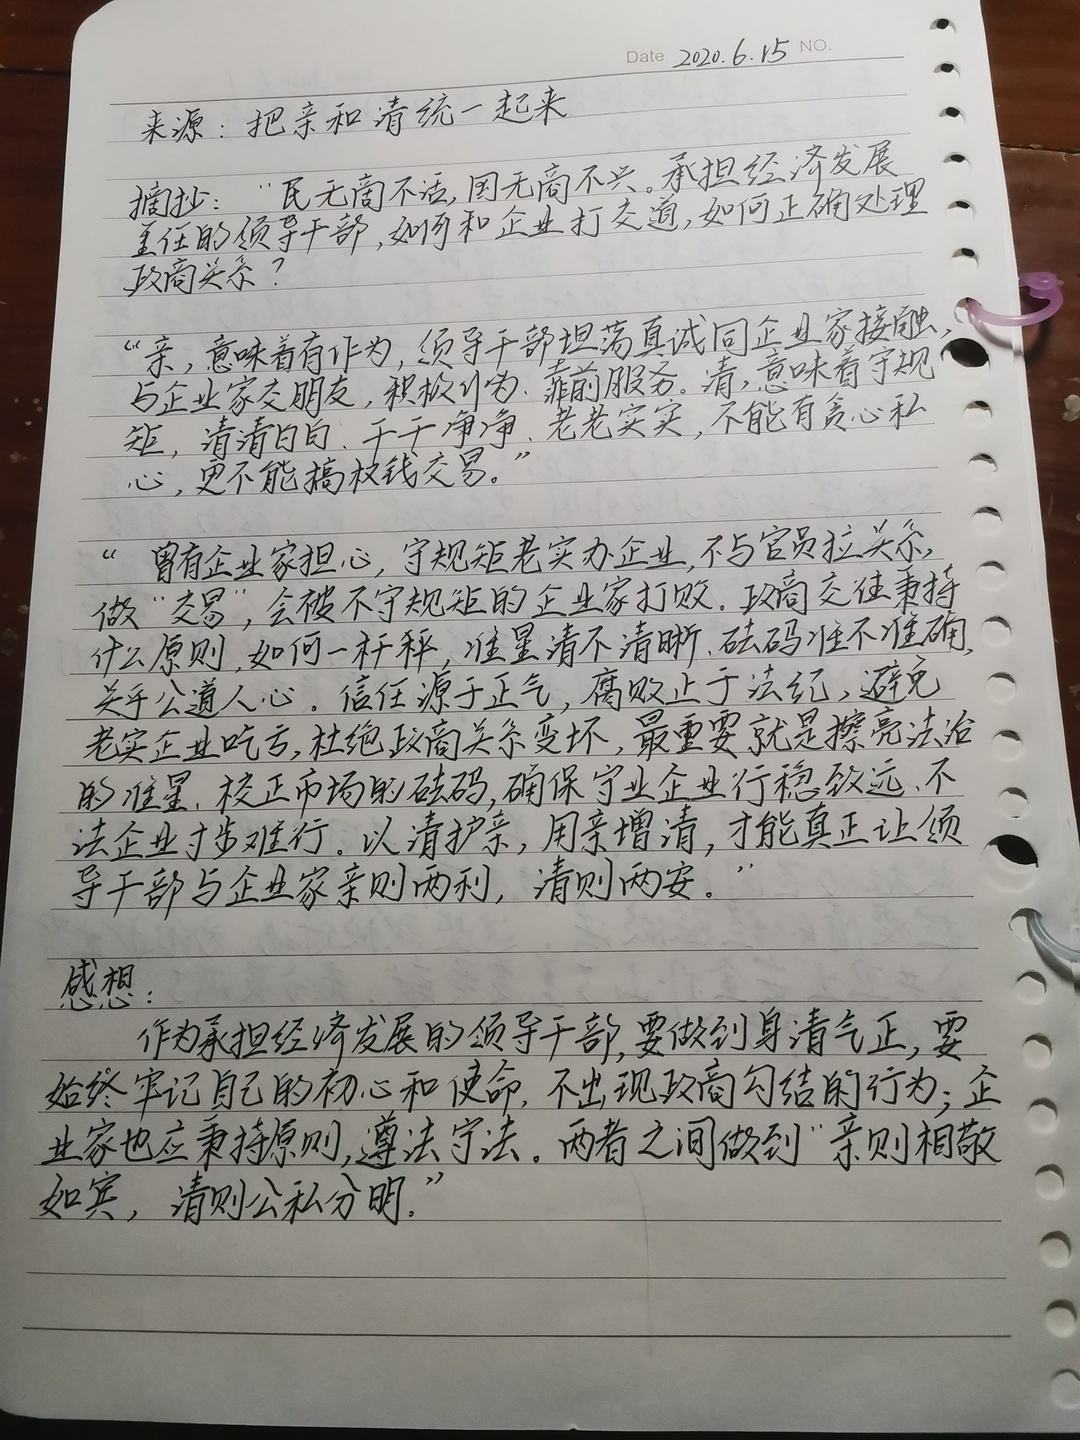 Date 2020.6.15 NO.
来源：把亲和清统一起来
摘抄：“民无商不活，国无商不兴。承担经济发展
责任的领导干部，如何和企业打交道，如何正确处理
政商关系？
“亲，意味着有作为，领导干部坦荡真诚同企业家接触，
与企业家交朋友，积极作为、靠前服务。清，意味着守规
矩，清清白白、干干净净、老老实实，不能有贪心私
心，更不能搞权钱交易。”
“曾有企业家担心，守规矩老实办企业，不与官员拉关系，
做“交易”，会被不守规矩的企业家打败。政商交往秉持
什么原则，如何一杆秤，准星清不清晰、砝码准不准确，
关乎公道人心。信任源于正气，腐败止于法纪，避免
老实企业吃亏，杜绝政商关系变坏，最重要就是擦亮法治
的准星、校正市场的砝码，确保守业企业行稳致远、不
法企业寸步难行。以清护亲，用亲增清，才能真正让领
导干部与企业家亲则两利，清则两安。”
感想：
作为承担经济发展的领导干部，要做到身清气正，要
始终牢记自己的初心和使命，不出现政商勾结的行为；企
业家也应秉持原则，遵法守法。两者之间做到“亲则相敬
如宾，清则公私分明.”